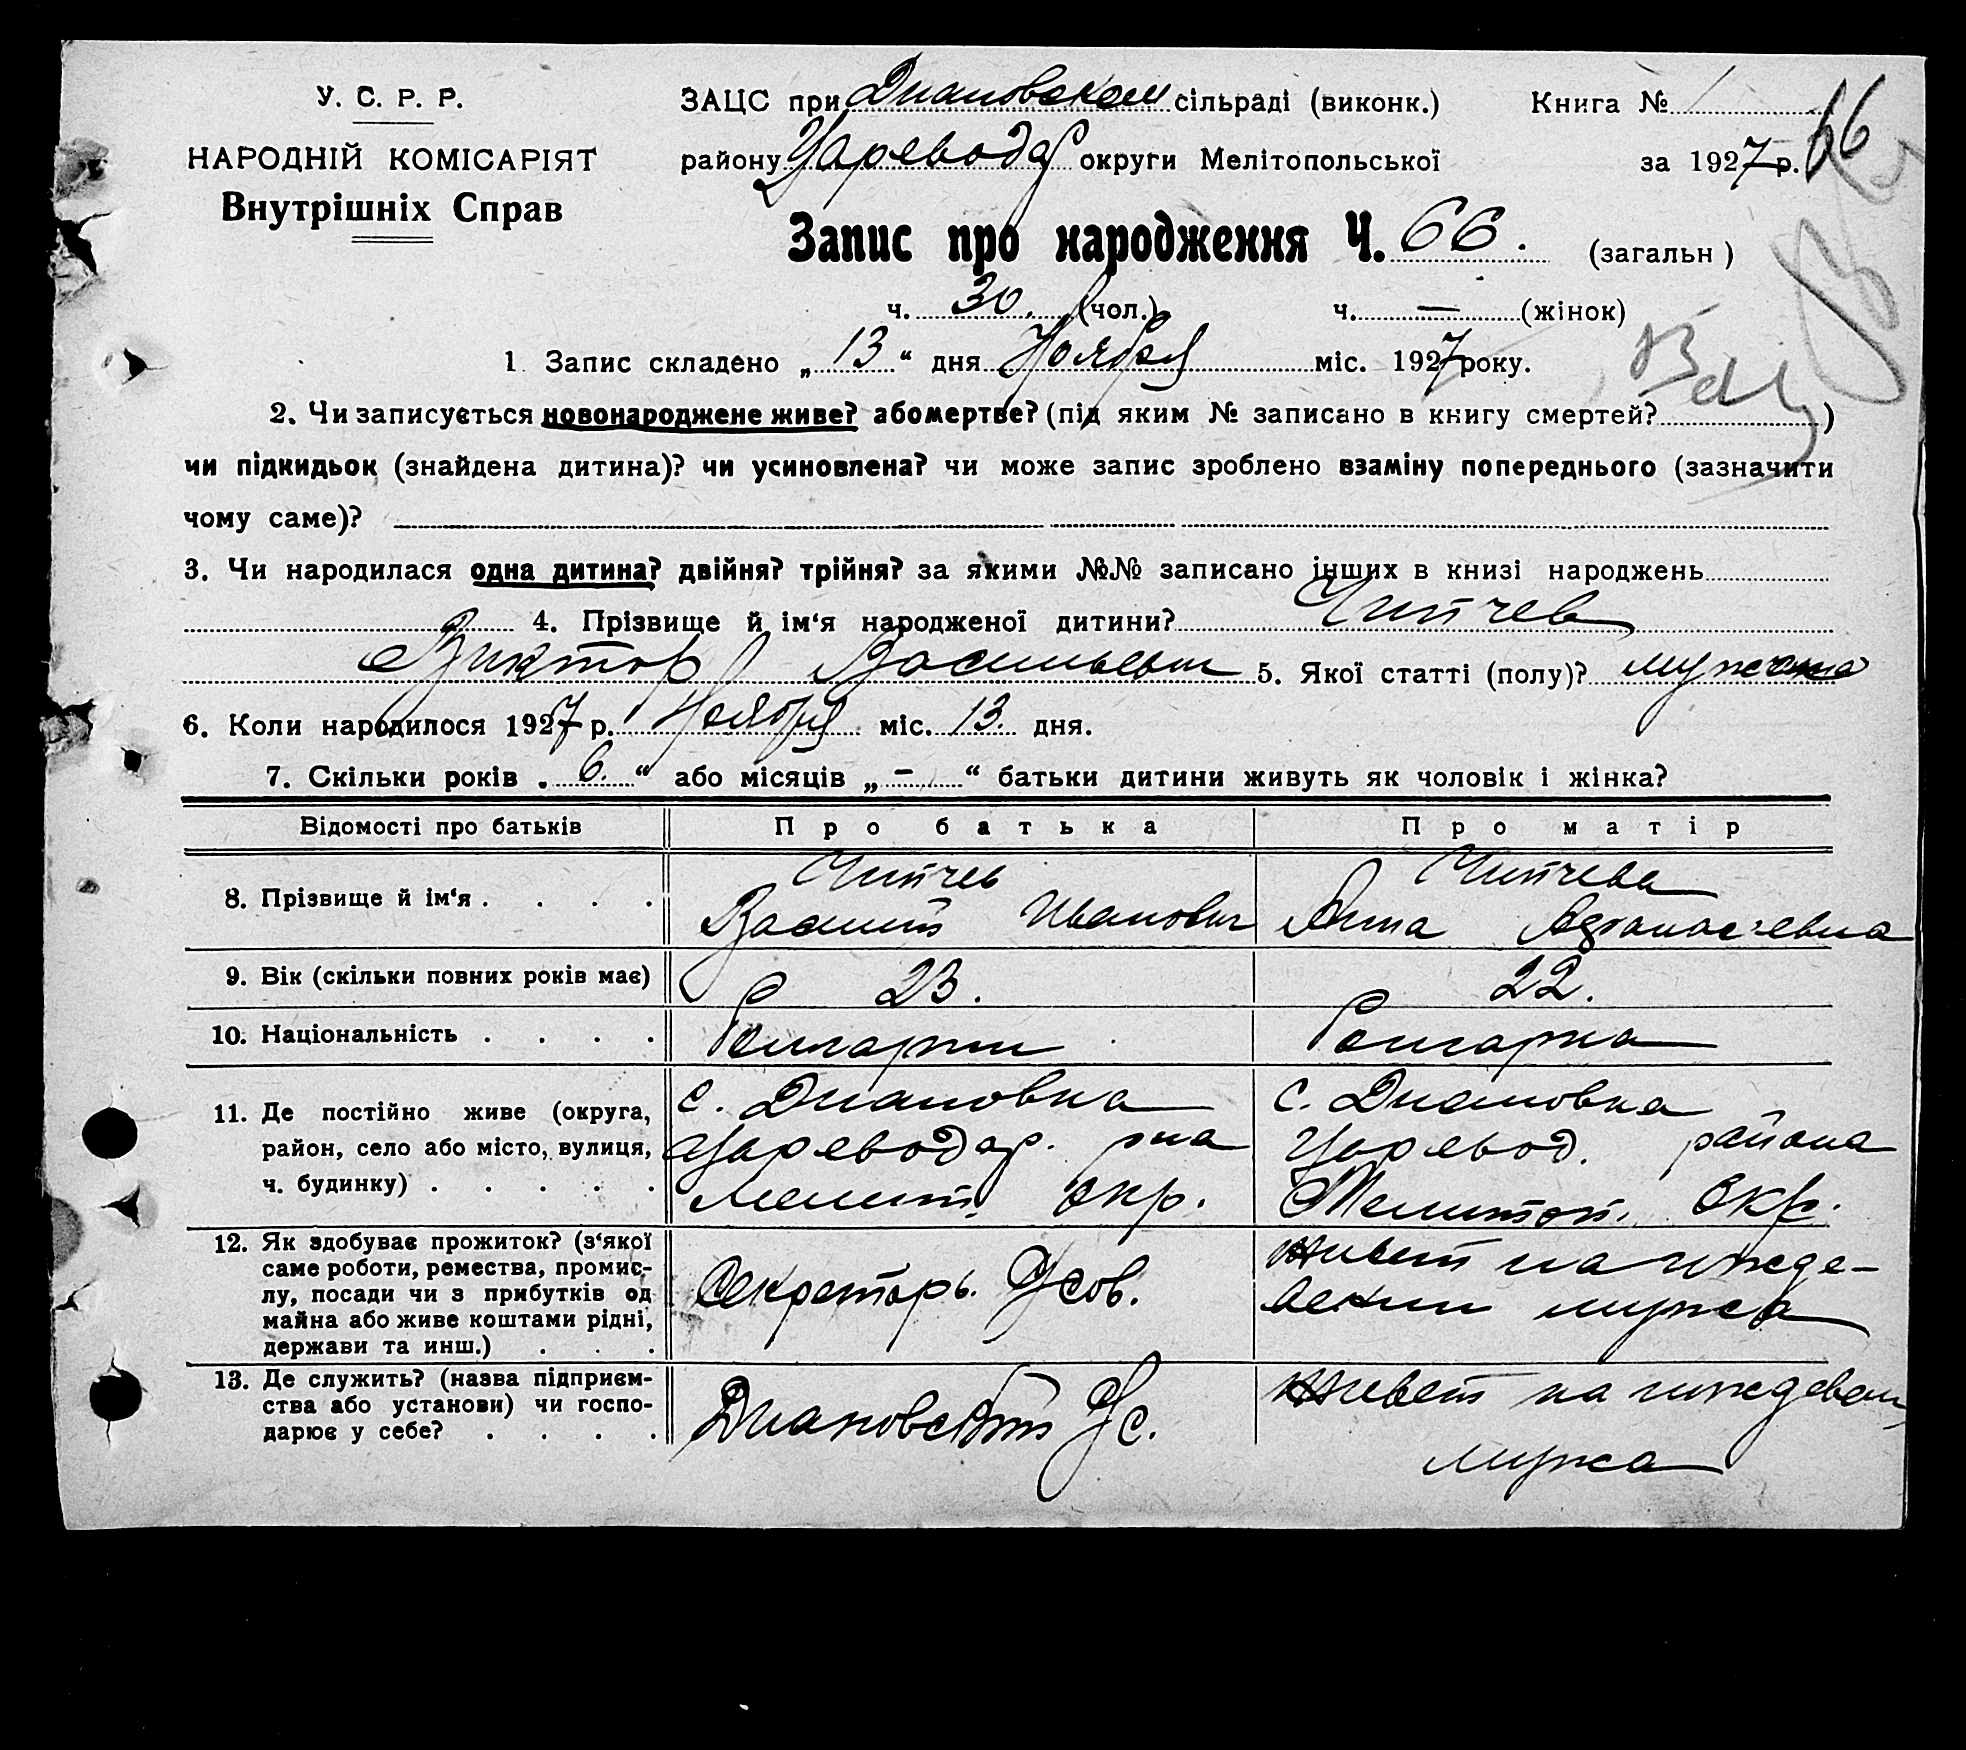 У. С. Р. Р.
НАРОДНІЙ КОМІСАРІЯТ
Внутрішніх Справ
ЗАЦС при Диановском сільраді (виконк.) Книга № 1
району Царевода округи Мелітопольської за 1927 р. 66
Запис про народження Ч. 66. (загальн )
ч. 30. (чол.) ч. — (жінок)
1 Запис складено „ 13 “ дня Ноября міс. 1927 року.
2. Чи записується новонароджене живе? або мертве? (під яким № записано в книгу смертей? )
чи підкидьок (знайдена дитина)? чи усиновлена? чи може запис зроблено взаміну попереднього (зазначити
чому саме)?
3. Чи народилася одна дитина? двійня? трійня? за якими №№ записано інших в книзі народжень
4. Прізвище й ім‘я народженої дитини? Чипчев
Виктор Васильевич 5. Якої статті (полу)?
6. Коли народилося 1927 р. Ноября міс. 13. дня.
7. Скільки років „ 6. “ або місяців „ – “ батьки дитини живуть як чоловік і жінка?
Відомості про батьків Про батька Про матір
8. Прізвище й ім‘я . . . . Чипчев Чипчева
Василий Иванович Анна Афанасьевна
9. Вік (скільки повних років має) 23. 22.
10. Національність . . . . Болгарин Болгарка
11. Де постійно живе (округа, с. Диановка с. Диановка
район, село або місто, вулиця, Цареводар. рна Царевод. района
ч. будинку) . . . . . Мелит. Окр. Мелитоп. Окр.
12. Як здобуває прожиток? (з‘якої
саме роботи, ремества, промис-
лу, посади чи з прибутків од
майна або живе коштами рідні,
держави та инш.) . . .
Секретарь Усов.
живет на ижде-
вении мужа
13. Де служить? (назва підприєм-
ства або установи) чи госпо-
дарює у себе? . . . .
Диановский Ус.
живет на иждевен
мужа